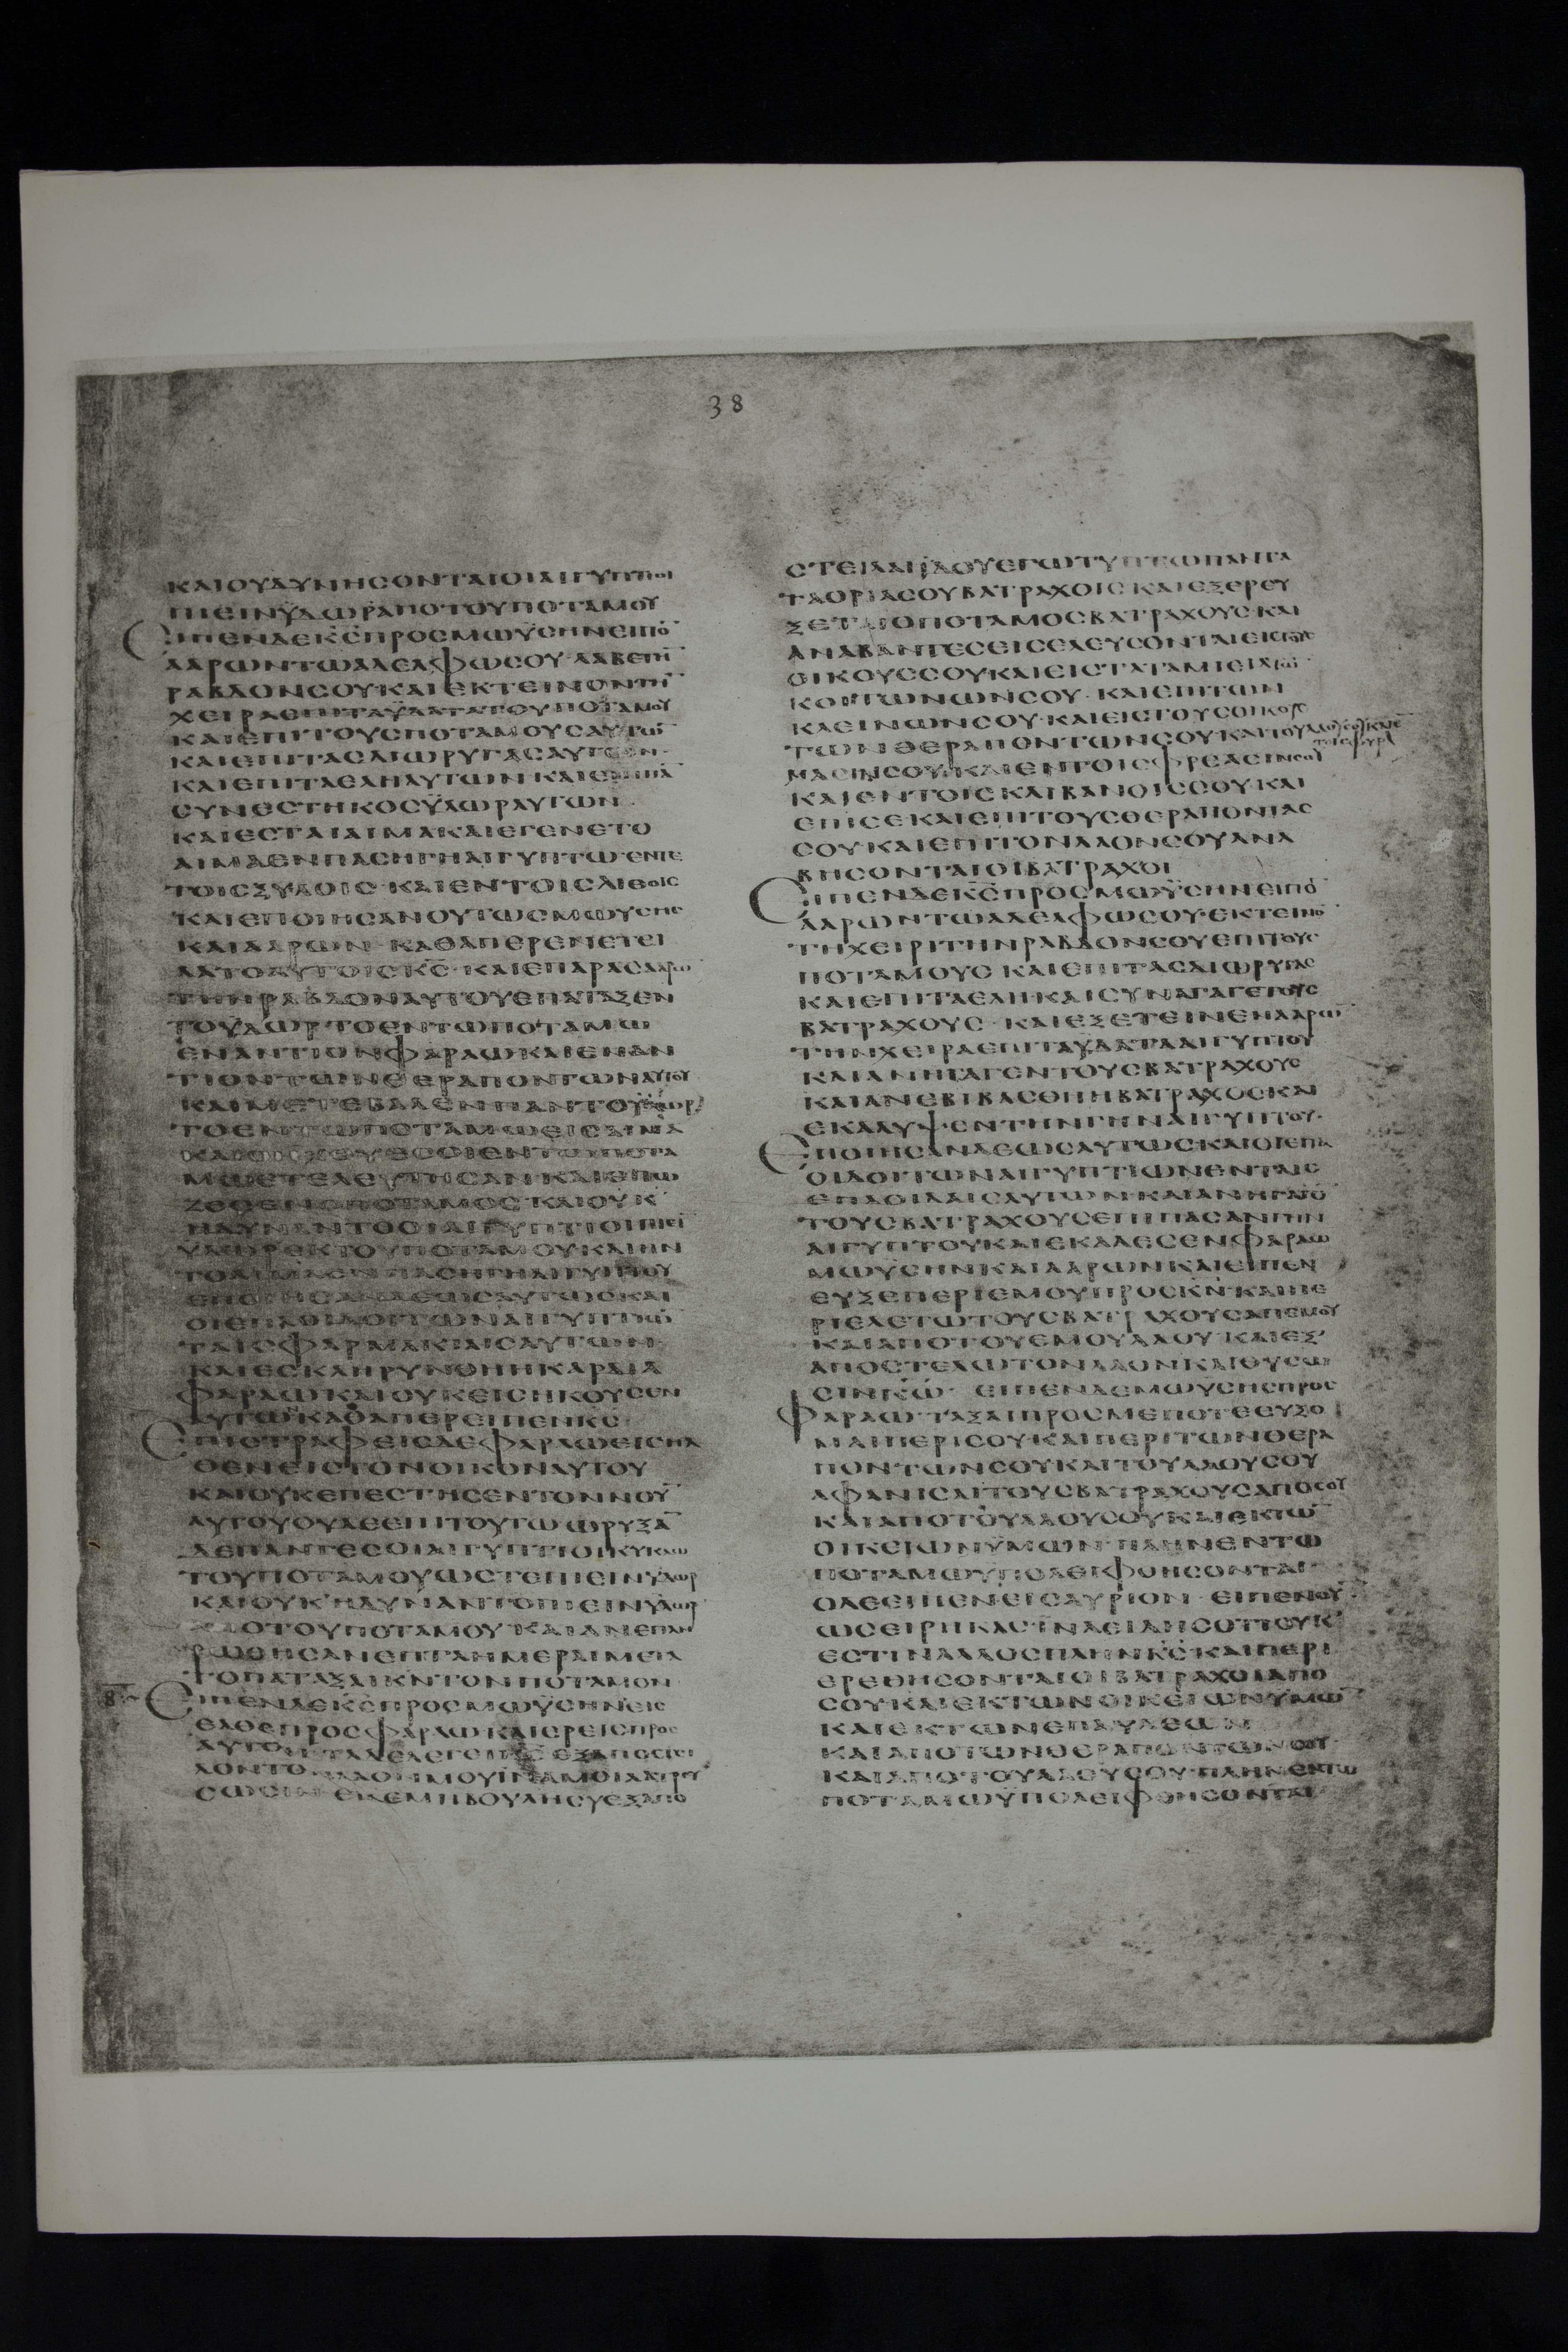 38
ΚΑΙΟΥΔΥΝΗΣΟΝΤΑΙΟΙΑΙΓΥΠΤΙΟΙ
ΠΙΕΙΝΫΔΩΡΑΠΟΤΟΥΠΟΤΑΜΟΥ
ΕΙΠΕΝΔΕΚ̅Σ̅ΠΡΟΣΜΩΫΣΗΝΕΙΠΟ̅
ΑΑΡΩΝΤΩΑΔΕΛΦΩΣΟΥ·ΛΑΒΕΤΗ̅
ΡΑΒΔΟΝΣΟΥΚΑΙΕΚΤΕΙΝΟΝΤΗ̅
ΧΕΙΡΑΕΠΙΤΑΫΔΑΤΑΤΟΥΠΟΤΑΜΟΥ
ΚΑΙΕΠΙΤΟΥΣΠΟΤΑΜΟΥΣΑΥΤΩ̅
ΚΑΙΕΠΙΤΑΣΔΙΩΡΥΓΑΣΑΥΤΩΝ·
ΚΑΙΕΠΙΤΑΕΛΗΑΥΤΩΝΚΑΙΕΠΙΠΑ̅
ΣΥΝΕΣΤΗΚΟΣΫΔΩΡΑΥΤΩΝ·
ΚΑΙΕΣΤΑΙΑΙΜΑΚΑΙΕΓΕΝΕΤΟ
ΑΙΜΑΕΝΠΑΣΗΓΗΑΙΓΥΠΤΩ·ΕΝΤΕ
ΤΟΙΣΞΥΛΟΙΣ·ΚΑΙΕΝΤΟΙΣΛΙΘΟΙΣ
ΚΑΙΕΠΟΙΗΣΑΝΟΥΤΩΣΜΩΥΣΗΣ
ΚΑΙΑΑΡΩΝ·ΚΑΘΑΠΕΡΕΝΕΤΕΙ
ΛΑΤΟΑΥΤΟΙΣΚ̅Σ̅·ΚΑΙΕΠΑΡΑΣΑΑΡΩ̅
ΤΗΝΡΑΒΔΟΝΑΥΤΟΥΕΠΑΤΑΞΕΝ
ΤΟΫΔΩΡΤΟΕΝΤΩΠΟΤΑΜΩ
ΕΝΑΝΤΙΟΝΦΑΡΑΩΚΑΙΕΝΑΝ
ΤΙΟΝΤΩΝΘΕΡΑΠΟΝΤΩΝΑΥΤΟΥ
ΚΑΙΜΕΤΕΒΑΛΕΝΠΑΝΤΟΫΔΩΡ
ΤΟΕΝΤΩΠΟΤΑΜΩΕΙΣΑΙΜΑ
ΚΑΙΟΙΙΧΘΥΕΣΟΙΕΝΤΩΠΟΤΑ
ΜΩΕΤΕΛΕΥΤΗΣΑΝΚΑΙΕΠΩ
ΖΕΣΕΝΟΠΟΤΑΜΟΣΚΑΙΟΥΚ
ΗΔΥΝΑΝΤΟΟΙΑΙΓΥΠΤΙΟΙΠΙΕΙ̅
ΥΔΩΡΕΚΤΟΥΠΟΤΑΜΟΥΚΑΙΗΝ
ΤΟΑΙΜΑΕΝΠΑΣΗΓΗΑΙΓΥΠΤΟΥ
ΕΠΟΙΗΣΑΝΔΕΩΣΑΥΤΩΣΚΑΙ
ΟΙΕΠΑΟΙΔΟΙΤΩΝΑΙΓΥΠΤΙΩ̅
ΤΑΙΣΦΑΡΜΑΚΙΑΙΣΑΥΤΩΝ·
ΚΑΙΕΣΚΛΗΡΥΝΘΗΗΚΑΡΔΙΑ
ΦΑΡΑΩΚΑΙΟΥΚΕΙΣΗΚΟΥΣΕΝ
ΑΥΤΩΝΚΑΘΑΠΕΡΕΙΠΕΝΚ̅Σ̅
ΕΠΙΣΤΡΑΦΕΙΣΔΕΦΑΡΑΩΕΙΣΗΛ
ΘΕΝΕΙΣΤΟΝΟΙΚΟΝΑΥΤΟΥ
ΚΑΙΟΥΚΕΠΕΣΤΗΣΕΝΤΟΝΝΟΥ̅
ΑΥΤΟΥΟΥΔΕΕΠΙΤΟΥΤΩΩΡΥΞΑ̅
ΔΕΠΑΝΤΕΣΟΙΑΙΓΥΠΤΙΟΙΚΥΚΛΩ
ΤΟΥΠΟΤΑΜΟΥΩΣΤΕΠΙΕΙΝΥΔΩΡ
ΚΑΙΟΥΚΗΔΥΝΑΝΤΟΠΙΕΙΝΥΔΩΡ
ΑΠΟΤΟΥΠΟΤΑΜΟΥ·ΚΑΙΑΝΕΠΛΗ
ΡΩΘΗΣΑΝΕΠΤΑΗΜΕΡΑΙΜΕΤΑ
ΤΟΠΑΤΑΞΑΙΚ̅Ν̅ΤΟΝΠΟΤΑΜΟΝ
8 ΕΙΠΕΝΔΕΚ̅Σ̅ΠΡΟΣΜΩΫΣΗΝΕΙΣ
ΕΛΘΕΠΡΟΣΦΑΡΑΩΚΑΙΕΡΕΙΣΠΡΟΣ
ΑΥΤΟΝΤΑΔΕΛΕΓΕΙΚ̅Σ̅ΕΞΑΠΟΣΤΕΙ
ΛΟΝΤΟΝΛΑΟΝΜΟΥΪΝΑΜΟΙΛΑΤΡΕΥ
ΣΩΣΙΝ ΕΙΔΕΜΗΒΟΥΛΗΣΥΕΞΑΠΟ
ΣΤΕΙΛΑΙΙΔΟΥΕΓΩΤΥΠΤΩΠΑΝΤΑ
ΤΑΟΡΙΑΣΟΥΒΑΤΡΑΧΟΙΣΚΑΙΕΞΕΡΕΥ
ΞΕΤΑΙΟΠΟΤΑΜΟΣΒΑΤΡΑΧΟΥΣ·ΚΑΙ
ΑΝΑΒΑΝΤΕΣΕΙΣΕΛΕΥΣΟΝΤΑΙΕΙΣΤΟΥΣ
ΟΙΚΟΥΣΣΟΥΚΑΙΕΙΣΤΑΤΑΜΙΕΙΑΤΩ̅
ΚΟΙΤΩΝΩΝΣΟΥ·ΚΑΙΕΠΙΤΩΝ
ΚΛΕΙΝΩΝΣΟΥ·ΚΑΙΕΙΣΤΟΥΣΟΙΚΟΥΣ
ΤΩΝΘΕΡΑΠΟΝΤΩΝΣΟΥΚΑΙΤΟΥΛΑΟΥΣΟΥΚΑΙΕ̅
ΜΑΣΙΝΣΟΥ·ΚΑΙΕΝΤΟΙΣΦΡΕΑΣΙΝΣΟΥ ΤΟΙΣΦΥΡΑ
ΚΑΙΕΝΤΟΙΣΚΛΙΒΑΝΟΙΣΣΟΥ·ΚΑΙ
ΕΠΙΣΕΚΑΙΕΠΙΤΟΥΣΘΕΡΑΠΟΝΤΑΣ
ΣΟΥΚΑΙΕΠΙΤΟΝΛΑΟΝΣΟΥΑΝΑ
ΒΗΣΟΝΤΑΙΟΙΒΑΤΡΑΧΟΙ
ΕΙΠΕΝΔΕΚ̅Σ̅ΠΡΟΣΜΩΫΣΗΝΕΙΠΟ̅
ΑΑΡΩΝΤΩΑΔΕΛΦΩΣΟΥ·ΕΚΤΕΙΝΟ̅
ΤΗΧΕΙΡΙΤΗΝΡΑΒΔΟΝΣΟΥΕΠΙΤΟΥΣ
ΠΟΤΑΜΟΥΣΚΑΙΕΠΙΤΑΣΔΙΩΡΥΓΑΣ
ΚΑΙΕΠΙΤΑΕΛΗΚΑΙΣΥΝΑΓΑΓΕΤΟΥΣ
ΒΑΤΡΑΧΟΥΣ·ΚΑΙΕΞΕΤΕΙΝΕΝΑΑΡΩ̅
ΤΗΝΧΕΙΡΑΕΠΙΤΑΫΔΑΤΑΑΙΓΥΠΤΟΥ
ΚΑΙΑΝΗΓΑΓΕΝΤΟΥΣΒΑΤΡΑΧΟΥΣ
ΚΑΙΑΝΕΒΙΒΑΣΘΗΗΒΑΤΡΑΧΟΣΚΑΙ
ΕΚΑΛΥΨΕΝΤΗΝΓΗΝΑΙΓΥΠΤΟΥ·
ΕΠΟΙΗΣΑΝΔΕΩΣΑΥΤΩΣΚΑΙΟΙΕΠΑ
ΟΙΔΟΙΤΩΝΑΙΓΥΠΤΙΩΝΕΝΤΑΙΣ
ΕΠΑΟΙΔΑΙΣΑΥΤΩΝΚΑΙΑΝΗΓΑΓΟ̅
ΤΟΥΣΒΑΤΡΑΧΟΥΣΕΠΙΠΑΣΑΝΓΗΝ
ΑΙΓΥΠΤΟΥΚΑΙΕΚΑΛΕΣΕΝΦΑΡΑΩ
ΜΩΥΣΗΝΚΑΙΑΑΡΩΝΚΑΙΕΙΠΕΝ
ΕΥΞΕΠΕΡΙΕΜΟΥΠΡΟΣΚ̅Ν̅·ΚΑΙΠΕ
ΡΙΕΛΕΤΩΤΟΥΣΒΑΤΡΑΧΟΥΣΑΠΕΜΟΥ
ΚΑΙΑΠΟΤΟΥΕΜΟΥΛΑΟΥ·ΚΑΙΕΞ
ΑΠΟΣΤΕΛΩΤΟΝΛΑΟΝΚΑΙΘΥΣΩ
ΣΙΝΚ̅Ω̅· ΕΙΠΕΝΔΕΜΩΥΣΗΣΠΡΟΣ
ΦΑΡΑΩ·ΤΑΞΑΙΠΡΟΣΜΕΠΟΤΕΕΥΞΟ
ΜΑΙΠΕΡΙΣΟΥΚΑΙΠΕΡΙΤΩΝΘΕΡΑ
ΠΟΝΤΩΝΣΟΥΚΑΙΤΟΥΛΑΟΥΣΟΥ
ΑΦΑΝΙΣΑΙΤΟΥΣΒΑΤΡΑΧΟΥΣΑΠΟΣΟΥ
ΚΑΙΑΠΟΤΟΥΛΑΟΥΣΟΥΚΑΙΕΚΤΩ̅
ΟΙΚΕΙΩΝΫΜΩΝ·ΠΛΗΝΕΝΤΩ
ΠΟΤΑΜΩΥΠΟΛΕΙΦΘΗΣΟΝΤΑΙ·
ΟΔΕΕΙΠΕΝΕΙΣΑΥΡΙΟΝ·ΕΙΠΕΝΟΥ̅·
ΩΣΕΙΡΗΚΑΣΪΝΑΕΙΔΗΣΟΤΙΟΥΚ
ΕΣΤΙΝΑΛΛΟΣΠΛΗΝΚ̅Σ̅·ΚΑΙΠΕΡΙ
ΕΡΕΘΗΣΟΝΤΑΙΟΙΒΑΤΡΑΧΟΙΑΠΟ
ΣΟΥΚΑΙΕΚΤΩΝΟΙΚΕΙΩΝΥΜΩ̅
ΚΑΙΕΚΤΩΝΕΠΑΥΛΕΩΝ
ΚΑΙΑΠΟΤΩΝΘΕΡΑΠΟΝΤΩΝΣΟΥ·
ΚΑΙΑΠΟΤΟΥΛΑΟΥΣΟΥ·ΠΛΗΝΕΝΤΩ
ΠΟΤΑΜΩΫΠΟΛΕΙΦΘΗΣΟΝΤΑΙ